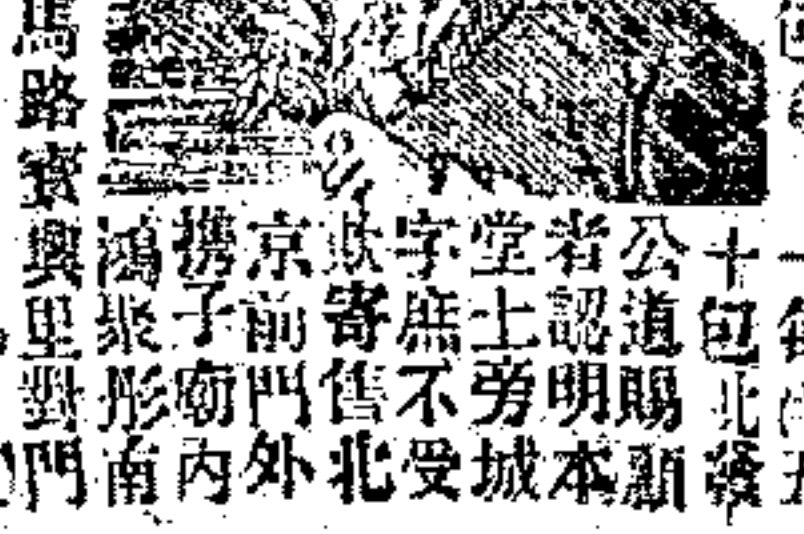 十包北發
公道賜顧
者認明本
堂士旁城
字庶不受
欺寄售北
京前門外
携子廟内
鴻聚彤南
馬路寳興里對門